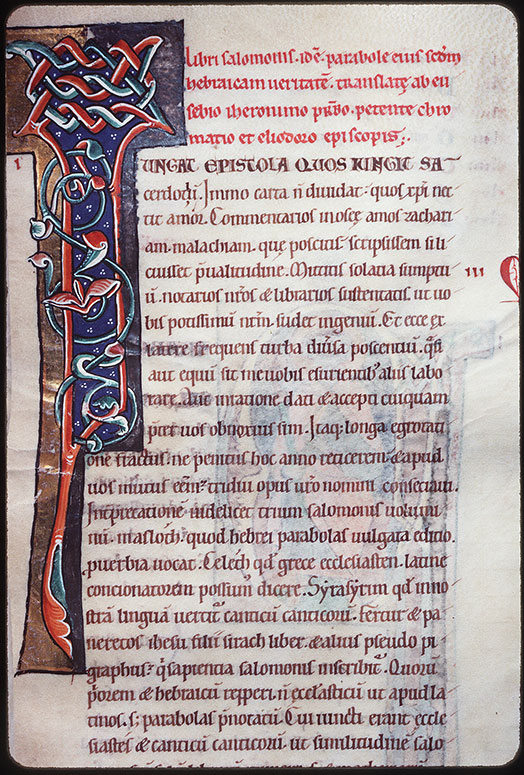 libri salomonis. idē parabole eius scdm
hebraicam ueritatē. translatę ab eu
sebio iheronimo prbo. petente chro
matio et eliodoro episcopis;.
I
UNGAT EPISTOLA QUOS IUNGIT SA
cerdotiū. Immo carta ñ diuidat. quos xp̄i nec
tit amor. Commentarios in oseę amos zachari
am malachiam. quę poscitis scripsissem si li
cuisset p̄ ualitudine. Mittitis solatia sumptu
ū. notarios nr̄os & librarios sustentatis. ut uo
bis potissimū nr̄m sudet ingeniū. Et ecce ex
latere frequens turba diuīsa poscentiū. q̄si
aut equū sit me uobis esurientib; aliis labo
rare. Aut in ratione dati & accepti cuiquam
p̄ter uos obnoxius sim. Itaq; longa egrotati
one fractus. ne penitus hoc anno reticerem. & apud
uos mutus eēm. tridui opus uro nomini consecraui.
Interpretatione uidelicet trium salomonis uolumi
nū. masloth. quod hebrei parabolas uulgata editio
puerbia uocat. Celeth qd grece ecclesiasten. latine
concionatorem possum dicere. Syrasyrim qd in no
strā linguā uertit. canticū canticorū. Fertur & pa
neretos ihesu filii sirach liber. & alius pseudo pi
graphus. q sapientia salomonis inscribit. Quorū
p̄orem & hebraicū repperi. ñ ecclasticū ut apud la
tinos. s; parabolas p̄notatū. Cui iuncti erant eccle
siastes & canticū canticorū. ut similitudinē salo
III